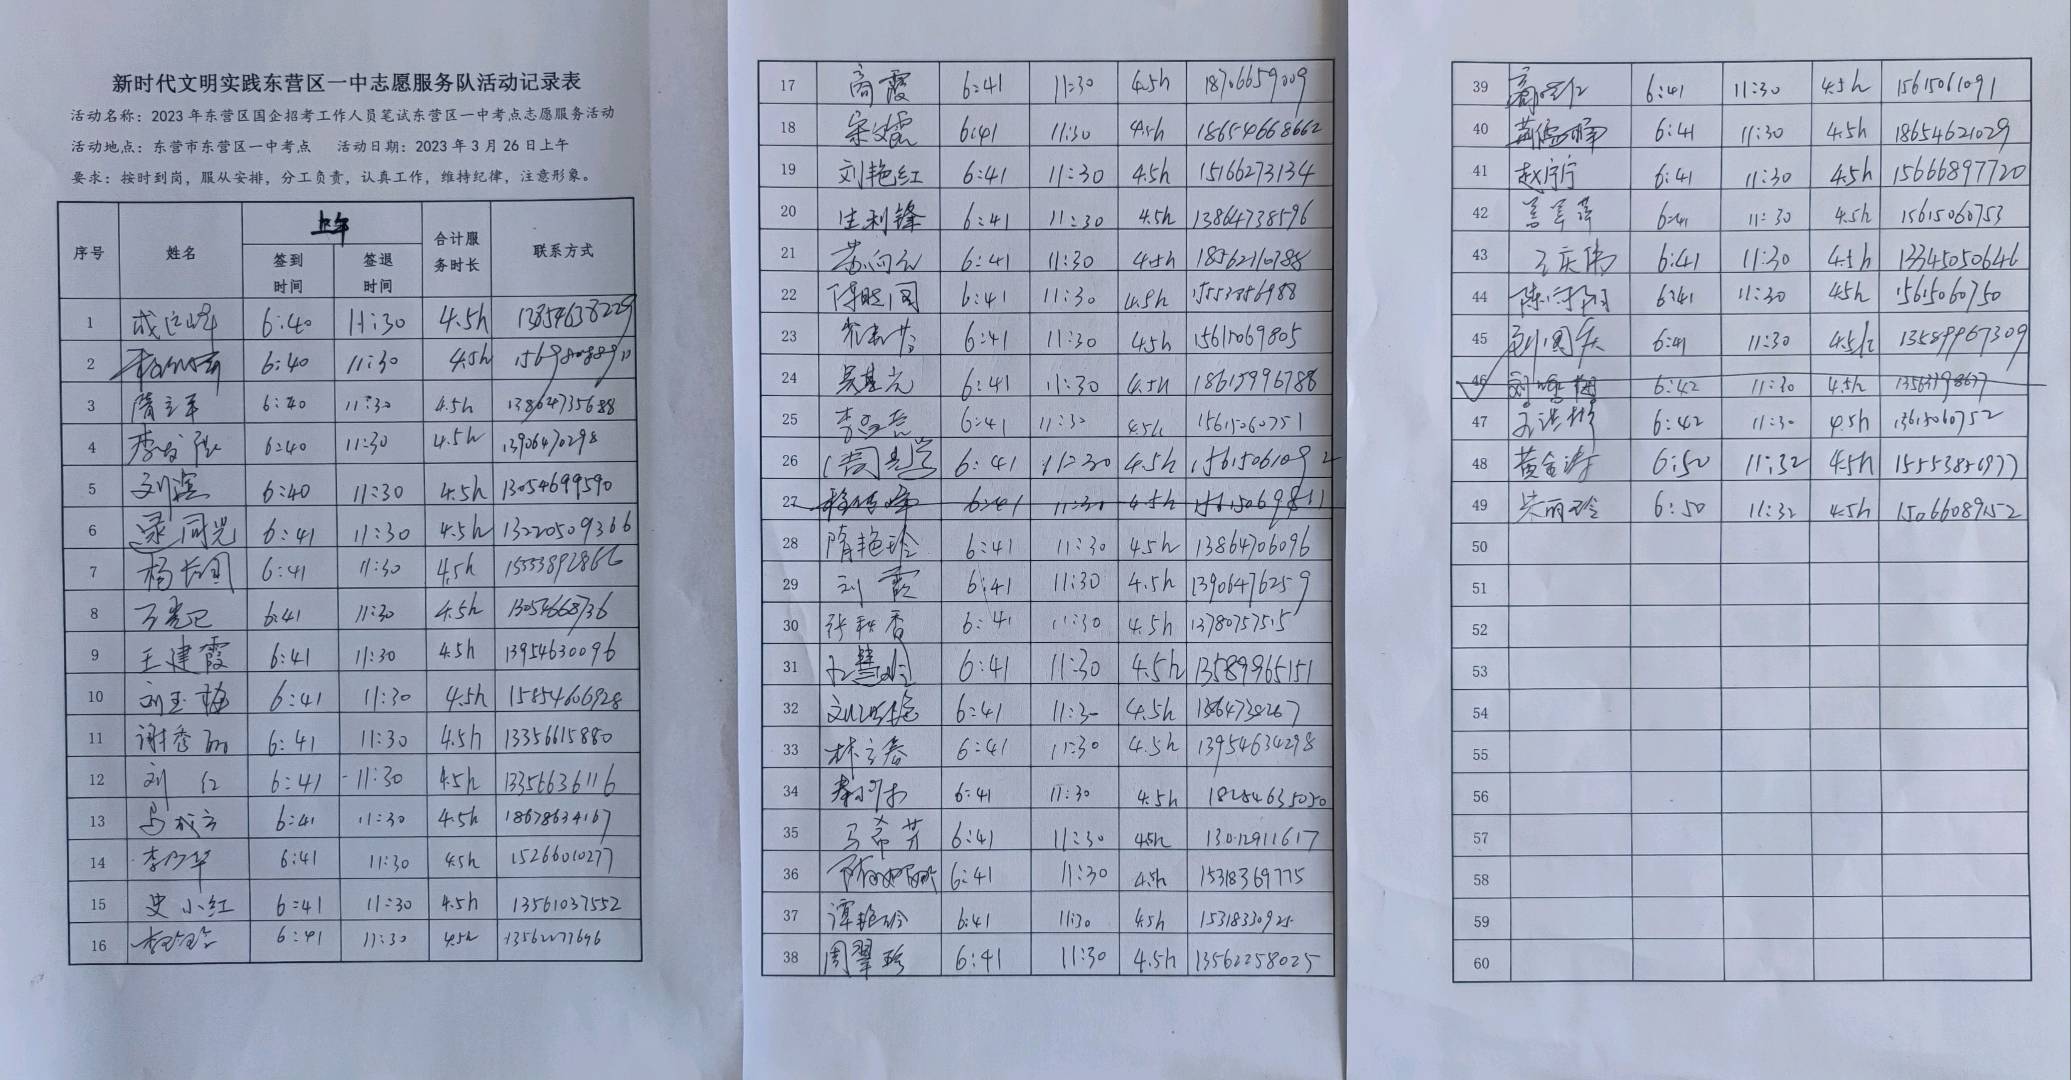 新时代文明实践东营区一中志愿服务队活动记录表
活动名称：2023年东营区国企招考工作人员笔试东营区一中考点志愿服务活动
活动地点：东营市东营区一中考点 活动日期：2023年3月26日上午
要求：按时到岗，服从安排，分工负责，认真工作，维持纪律，注意形象。
序号 姓名 上午 合计服务时长 联系方式
签到时间 签退时间
1 6:40 11:30 4.5h 13854638229
2 6:40 11:30 4.5h
3 隋立军 6:40 11:30 4.5h 13864735688
4 6:40 11:30 4.5h 13906470298
5 刘滨 6:40 11:30 4.5h 13054699590
6 逯同光 6:41 11:30 4.5h 13220509366
7 杨长国 6:41 11:30 4.5h
8 6:41 11:30 4.5h 13054668736
9 王建霞 6:41 11:30 4.5h 13954630096
10 刘玉梅 6:41 11:30 4.5h 15854606928
11 谢秀丽 6:41 11:30 4.5h 13356615880
12 刘红 6:41 11:30 4.5h 13356636116
13 6:41 11:30 4.5h 18678634167
14 李乃华 6:41 11:30 4.5h 15266010277
15 史小红 6:41 11:30 4.5h 13561037552
16 6:41 11:30 4.5h
17 商霞 6:41 11:30 4.5h 18706659009
18 宋文霞 6:41 11:30 4.5h 18654668662
19 刘艳红 6:41 11:30 4.5h 15166273134
20 生利锋 6:41 11:30 4.5h 13864738596
21 6:41 11:30 4.5h
22 6:41 11:30 4.5h 15553856988
23 6:41 11:30 4.5h 15615069805
24 吴基光 6:41 11:30 4.5h 18615996788
25 6:41 11:30 4.5h 15615060751
26 6:41 11:30 4.5h 15615061092
27 6:41 11:30 4.5h 15615069811
28 隋艳玲 6:41 11:30 4.5h 13864706096
29 刘霞 6:41 11:30 4.5h 13906476259
30 张秋香 6:41 11:30 4.5h 13780757515
31 6:41 11:30 4.5h 13589965151
32 6:41 11:30 4.5h 13864738267
33 林立春 6:41 11:30 4.5h 13954634298
34 6:41 11:30 4.5h 18254635050
35 马希芹 6:41 11:30 4.5h 13012911617
36 6:41 11:30 4.5h 15318369775
37 谭艳玲 6:41 11:30 4.5h
38 周翠珍 6:41 11:30 4.5h 13562258025
39 6:41 11:30 4.5h 15615061091
40 6:41 11:30 4.5h 18654621029
41 赵宁宁 6:41 11:30 4.5h 15666897720
42 6:41 11:30 4.5h 15615060753
43 王庆伟 6:41 11:30 4.5h 13345050646
44 6:41 11:30 4.5h 15615060750
45 6:41 11:30 4.5h 13589967309
46 6:42 11:30 4.5h 13563398677
47 6:42 11:30 4.5h 15615060752
48 黄金涛 6:50 11:32 4.5h 15553856977
49 6:50 11:32 4.5h 15066089152
50
51
52
53
54
55
56
57
58
59
60